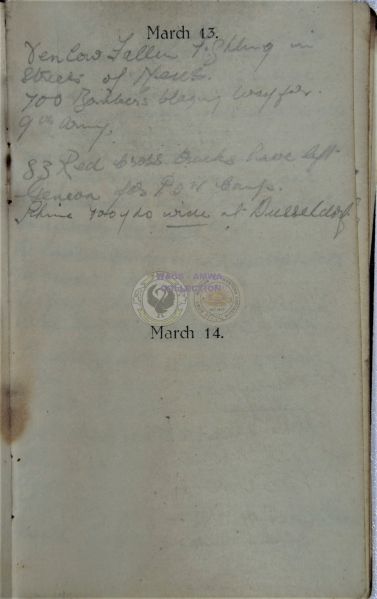 March 13.
Venlow Fallen Fighting in
Streets of Neus.
700 Bombers blazing way for
9th Army.
83 Red Cross trucks have left
Geneva for POW Camps.
Rhine 400 yds wide at Dusseldorf
WAGS - AMWA
COLLECTION
March 14.